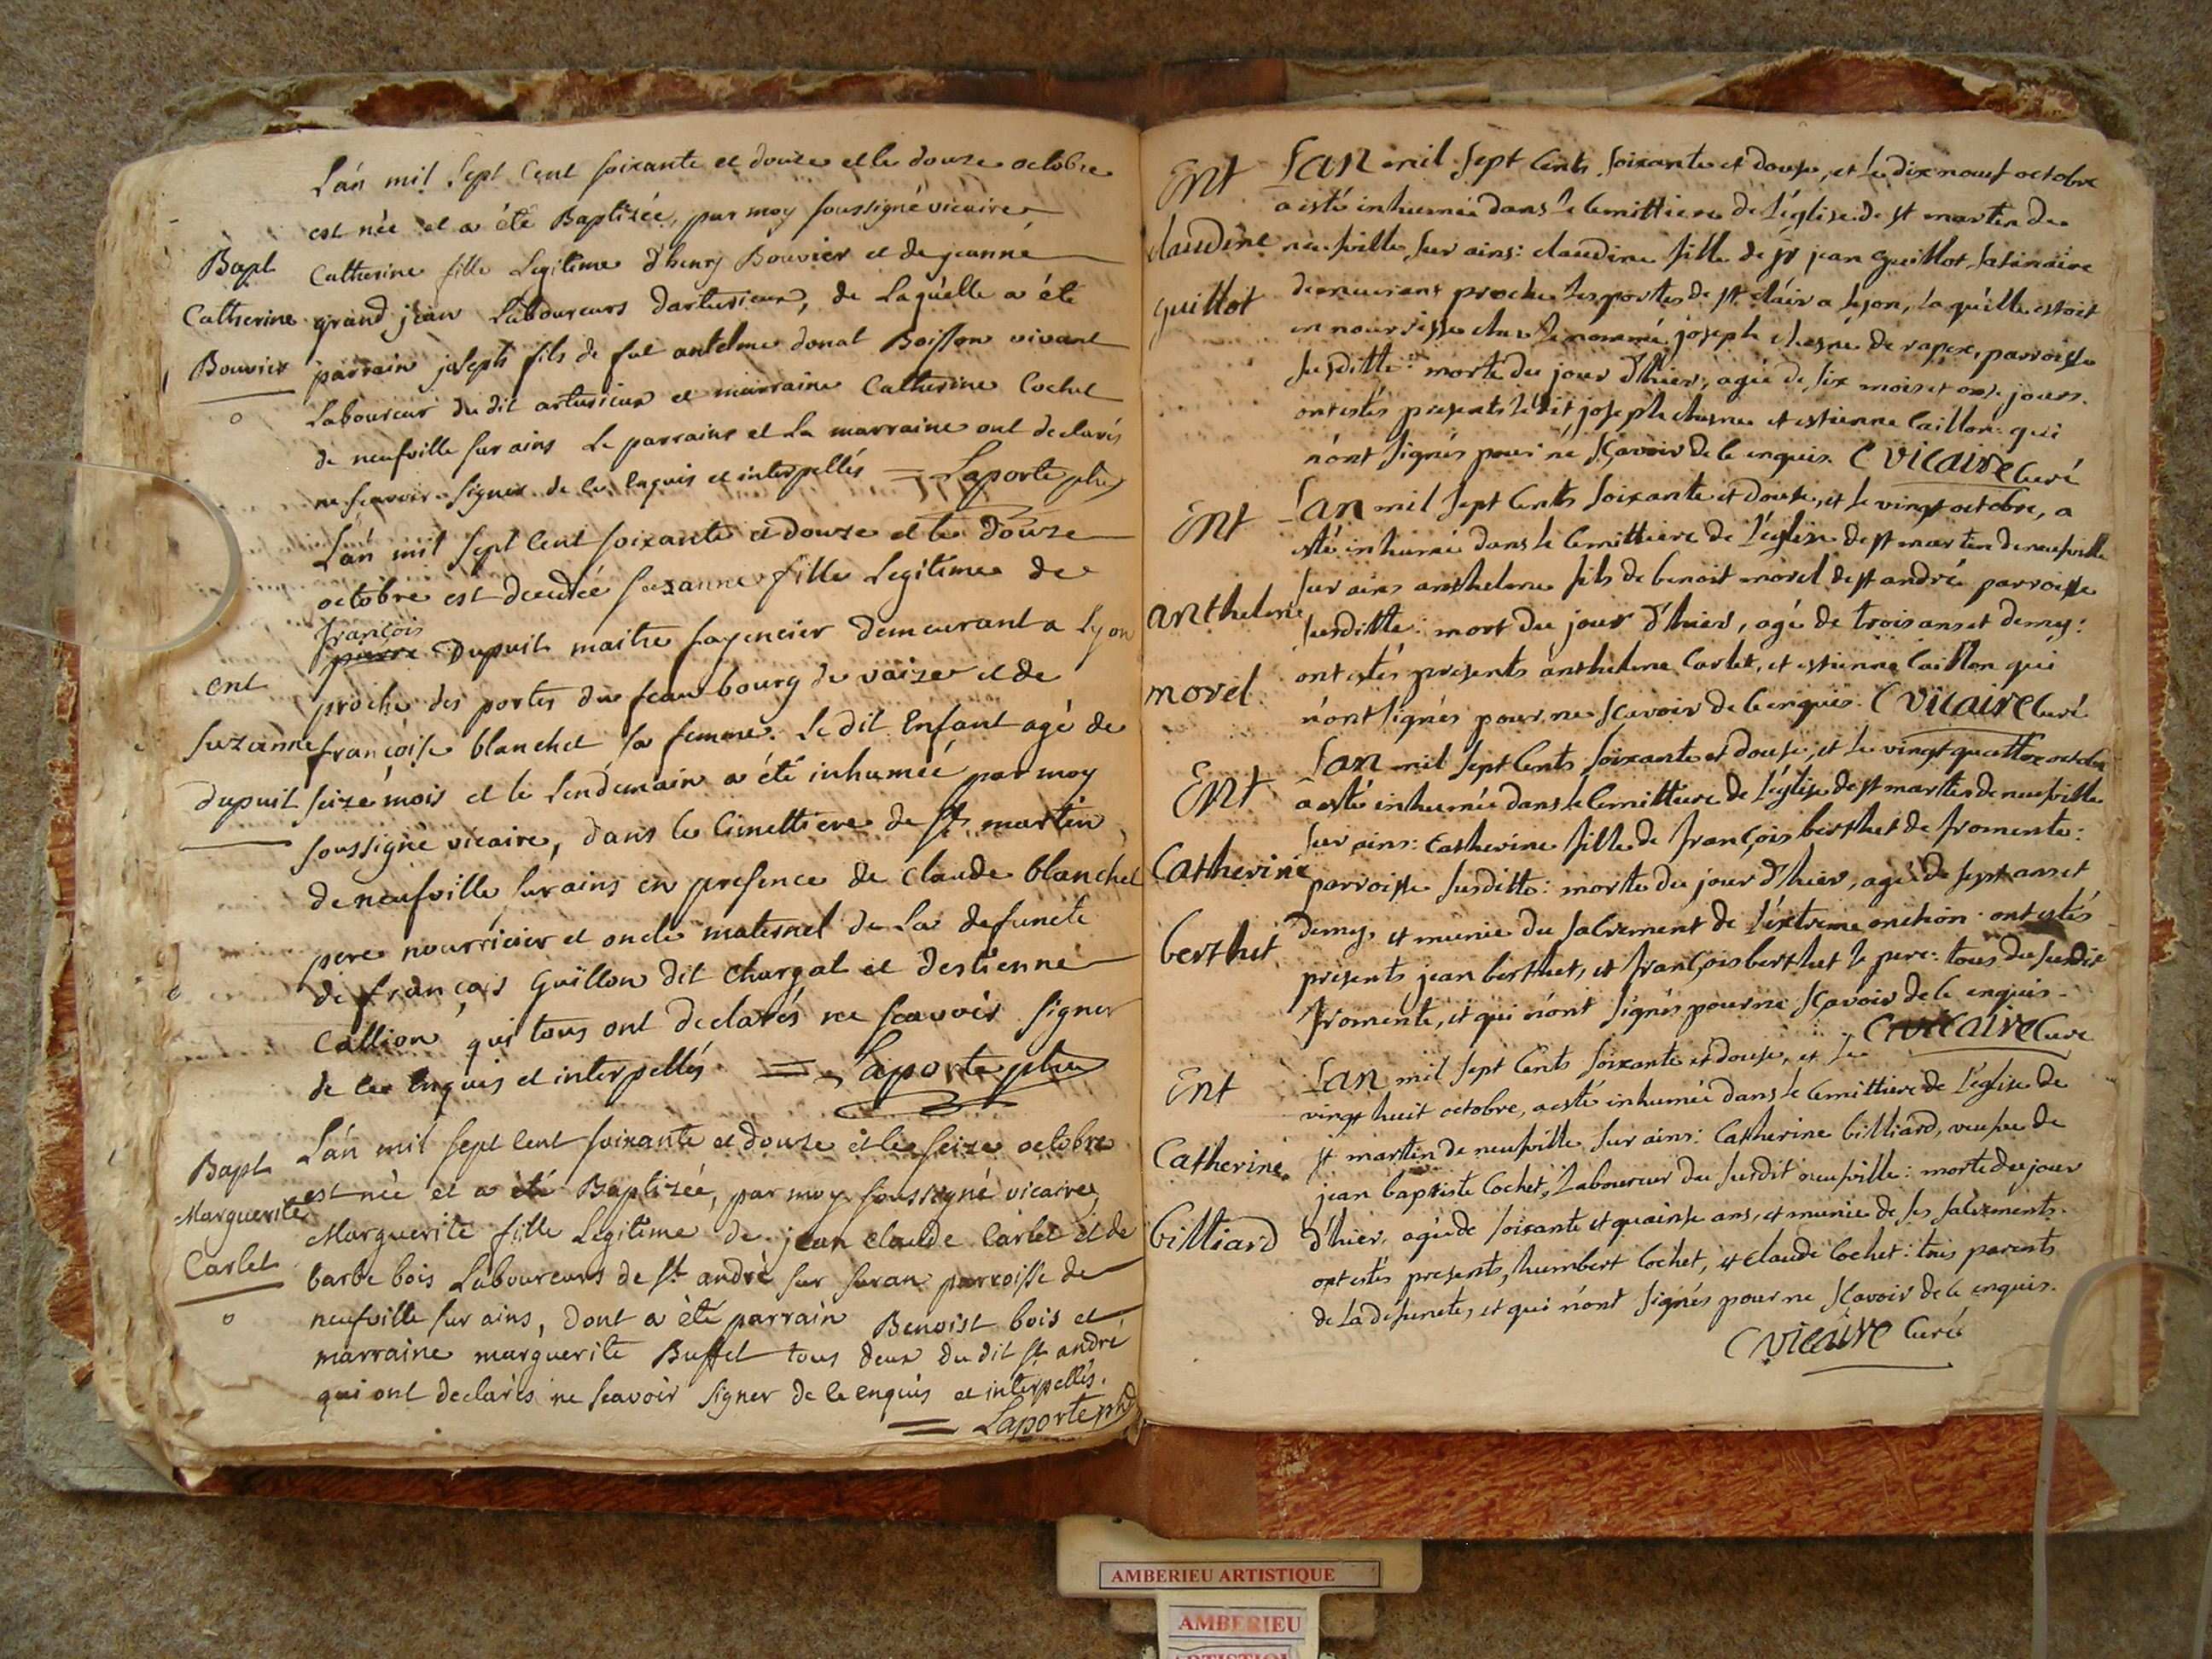 L'an mil sept cent soixante et douze et le douze octobre
est née et a été Baptisée, par moy soussigné vicaire
Bapt Catherine fille Legitime d'henry Bouvier et de jeanne
Catherine grand jean Laboureurs d'arturieux, de Laquelle a été
Bouvier parrain joseph fils de fut antelme donat Boisson vivant
Laboureur du dit arturieux et marraine Catherine Cochet
de neufville sur ains Le parrains et La marraine ont declarés
ne scavoir signer de ce enquis et interpellés = Laporte ptre
L'an mil sept cent soixante et douze et le douze
octobre est decedée suzanne fille Legitime de
françois
pierre Dupuit maitre fayencier demeurant a Lyon
ent proche des portes du feaubourg de vaize et de
suzanne françoise blanchet sa femme. Le dit Enfant agé de
dupuit seize mois et le lendemain a été inhumée par moy
soussigné vicaire, dans le Cimettiere de st martin
de neufville sur ains en presence de Claude blanchet
pere nourricier et oncle maternel de La defuncte
de françois Guillon dit Chargat et destienne
Callion, qui tous ont declarés ne scavoir signer
de ce enquis et interpellés = Laporte ptre
L'an mil sept cent soixante et douze et le seize octobre
Bapt est née et a été Baptisée, par moy soussigné vicaire,
Marguerite Marguerite fille Legitime de jean claude Carlet et de
Carlet barbe bois Laboureurs de st andré sur suran parroisse de
neufville sur ains, dont a été parrain Benoist bois et
marraine marguerite Buffet tous deux du dit st andré
qui ont declarés ne scavoir signer de ce enquis et interpellés.
= Laporte ptre
Ent Lan mil sept Cents soixante et douse, et le dix neuf octobre
a esté inhumée dans le Cemittiere de L'église de st martin de
claudine neufville sur ains: claudine fille de sr jean guillot, satinaire
guillot demeurant proche les portes de st clair a lyon, laquelle estoit
en nourrisse chez le nommé joseph chesne de rapex, parroisse
susditte: morte du jour d'hier, agée de six mois et onze jours.
ont estés presents ledit joseph chesne et estienne Caillon: qui
n'ont signés pour ne sçavoir de ce enquis. C vicaire Curé
Ent Lan mil sept Cents soixante et douse, et le vingt octobre, a
esté inhumé dans le Cemittiere de L'église de st martin de neufville
anthelme sur ains anthelme fils de benoit morel de st andré parroisse
susditte: mort du jour d'hier, agé de trois ans et demy:
morel ont estés presents anthelme Carlet, et estienne Caillon qui
n'ont signés pour ne sçavoir de ce enquis. C vicaire Curé
Ent Lan mil sept Cents soixante et douse, et le vingt quattre octobre
a esté inhumée dans le Cemittiere de L'église de st martin de neufville
sur ains: catherine fille de françois berthet de fromente:
Catherine parroisse susditte: morte du jour d'hier, agée de sept ans et
berthet demy, et munie du sacrement de l'extreme onction. ont estés
presents jean berthet, et françois berthet le pere: tous du susdit
fromente, et qui n'ont signés pour ne sçavoir de ce enquis.
C vicaire Curé
Ent Lan mil sept Cents soixante et douse, et le
vingt huit octobre, a esté inhumée dans le Cemittiere de L'église de
Catherine st martin de neufville sur ains: Catherine billiard, veufve de
jean baptiste Cochet, Laboureur du susdit neufville: morte du jour
billiard d'hier, agée de soixante et quainse ans, et munie de ses sacrements.
ont estés presents, humbert Cochet, et claude Cochet: tous parents
de la défuncte, et qui n'ont signés pour ne sçavoir de ce enquis.
C vicaire Curé
AMBERIEU ARTISTIQUE
AMBERIEU
ARTISTIQUE